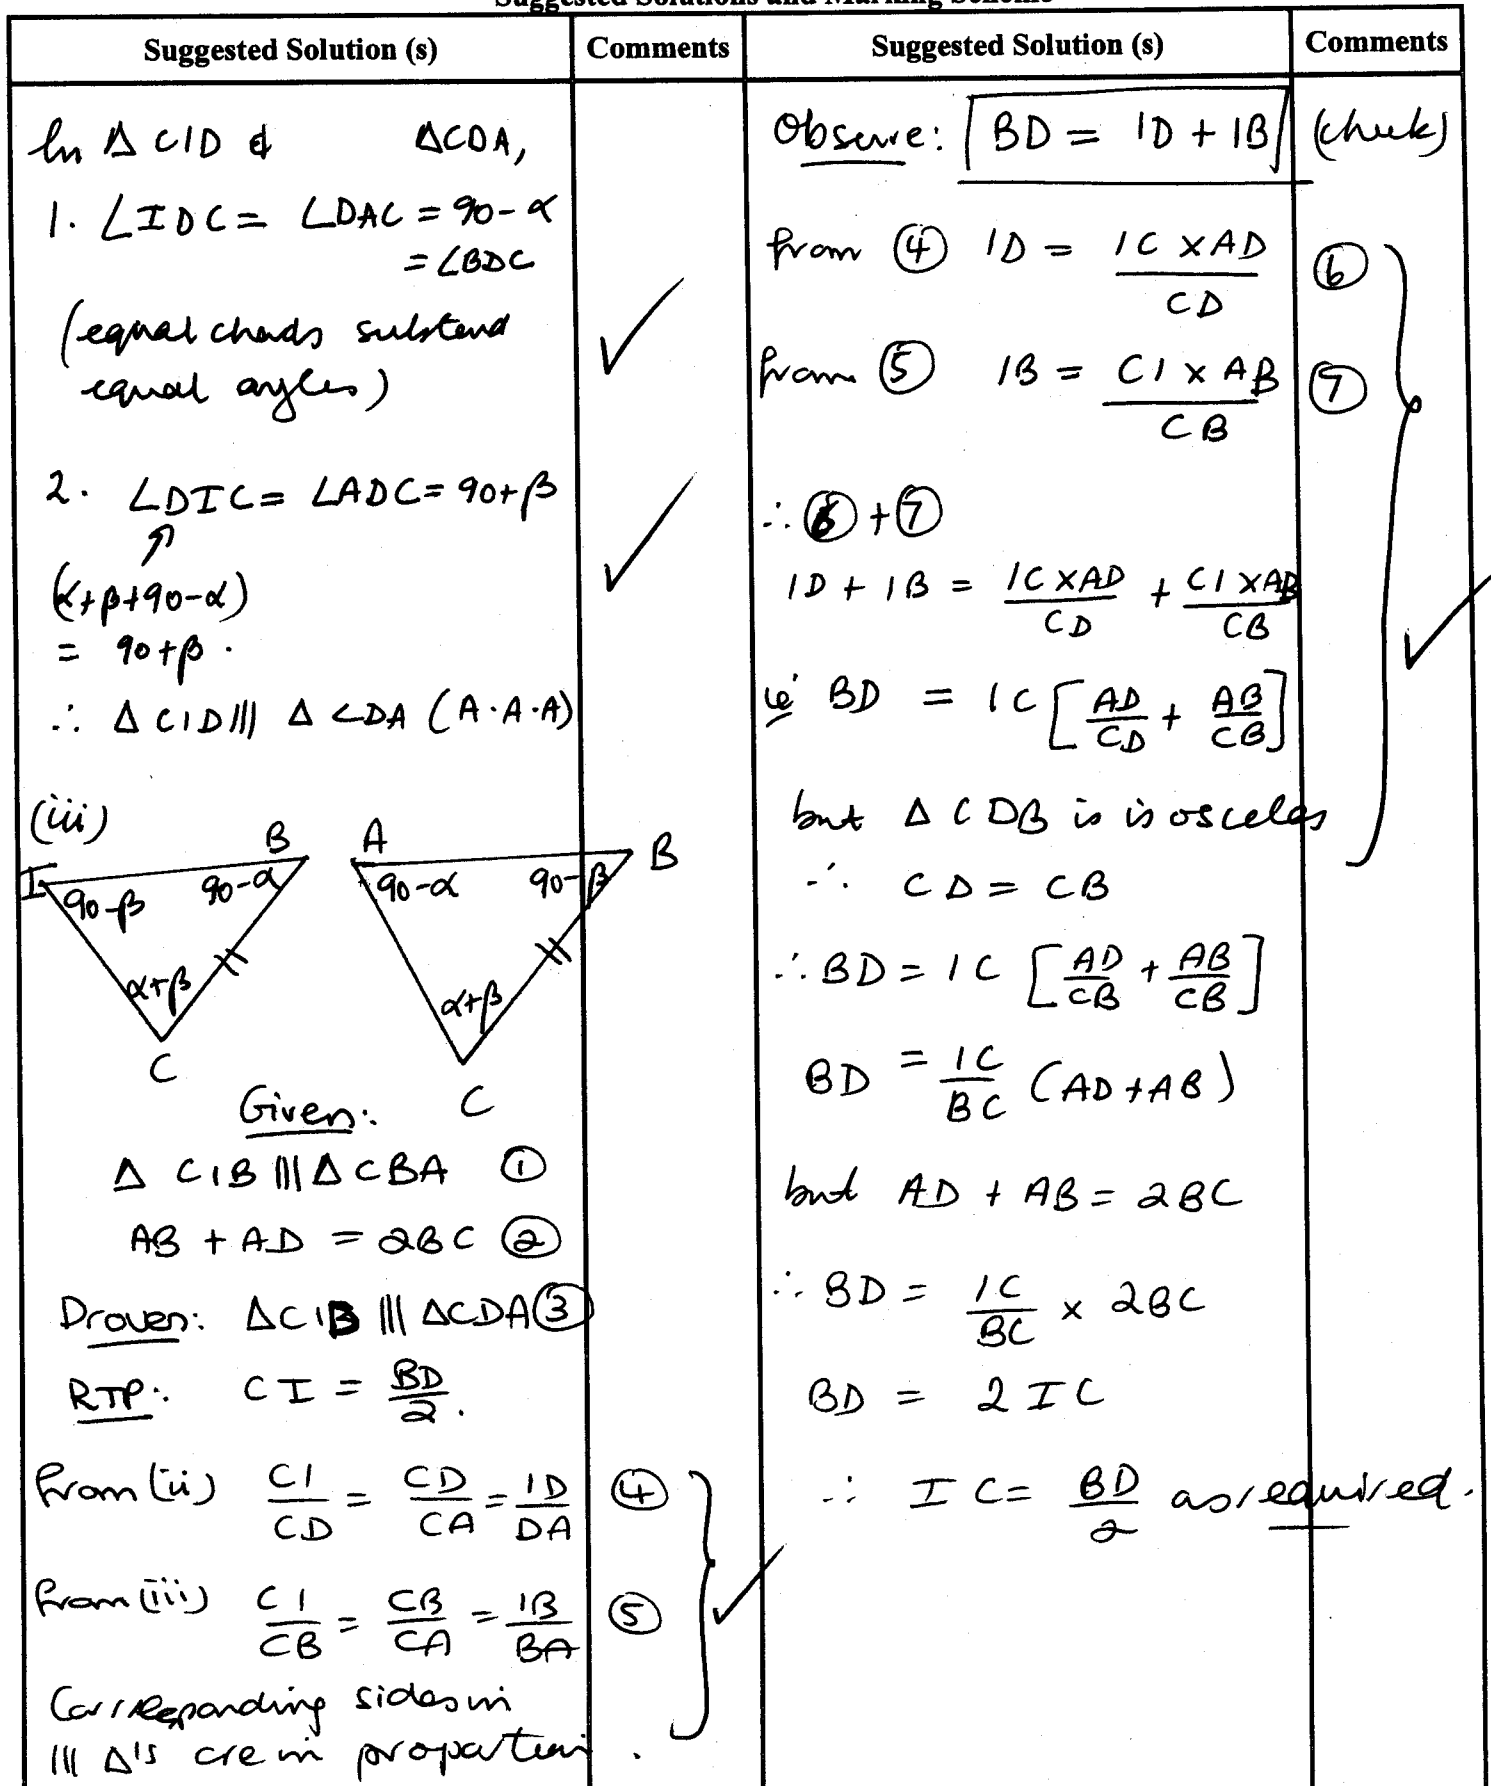 Suggested Solutions and Marking Scheme
Suggested Solution (s)
Comments
In Δ CID & ΔCDA,
1. ∠IDC = ∠DAC = 90-α
= ∠BDC
(equal chords subtend
equal angles)
2. ∠DIC = ∠ADC = 90+β
(α+β+90-α)
= 90+β.
∴ Δ CID ||| Δ CDA (A.A.A)
(iii)
I B A B
90-β 90-α 90-α 90-β
α+β α+β
C C
Given:
Δ CIB ||| Δ CBA ①
AB + AD = 2BC ②
Proven: ΔCIB ||| ΔCDA ③
RTP: CI = BD/2.
from (ii) CI/CD = CD/CA = ID/DA ④
from (iii) CI/CB = CB/CA = IB/BA ⑤
Corresponding sides in
||| Δ's are in proportion.
Suggested Solution (s)
Comments
Observe: BD = ID + IB (check)
from ④ ID = IC × AD/CD ⑥
from ⑤ IB = CI × AB/CB ⑦
∴ ⑥ + ⑦
ID + IB = IC × AD/CD + CI × AB/CB
ie BD = IC [AD/CD + AB/CB]
but Δ CDB is isosceles
∴ CD = CB
∴ BD = IC [AD/CB + AB/CB]
BD = IC/BC (AD + AB)
but AD + AB = 2BC
∴ BD = IC/BC × 2BC
BD = 2 IC
∴ IC = BD/2 as required.